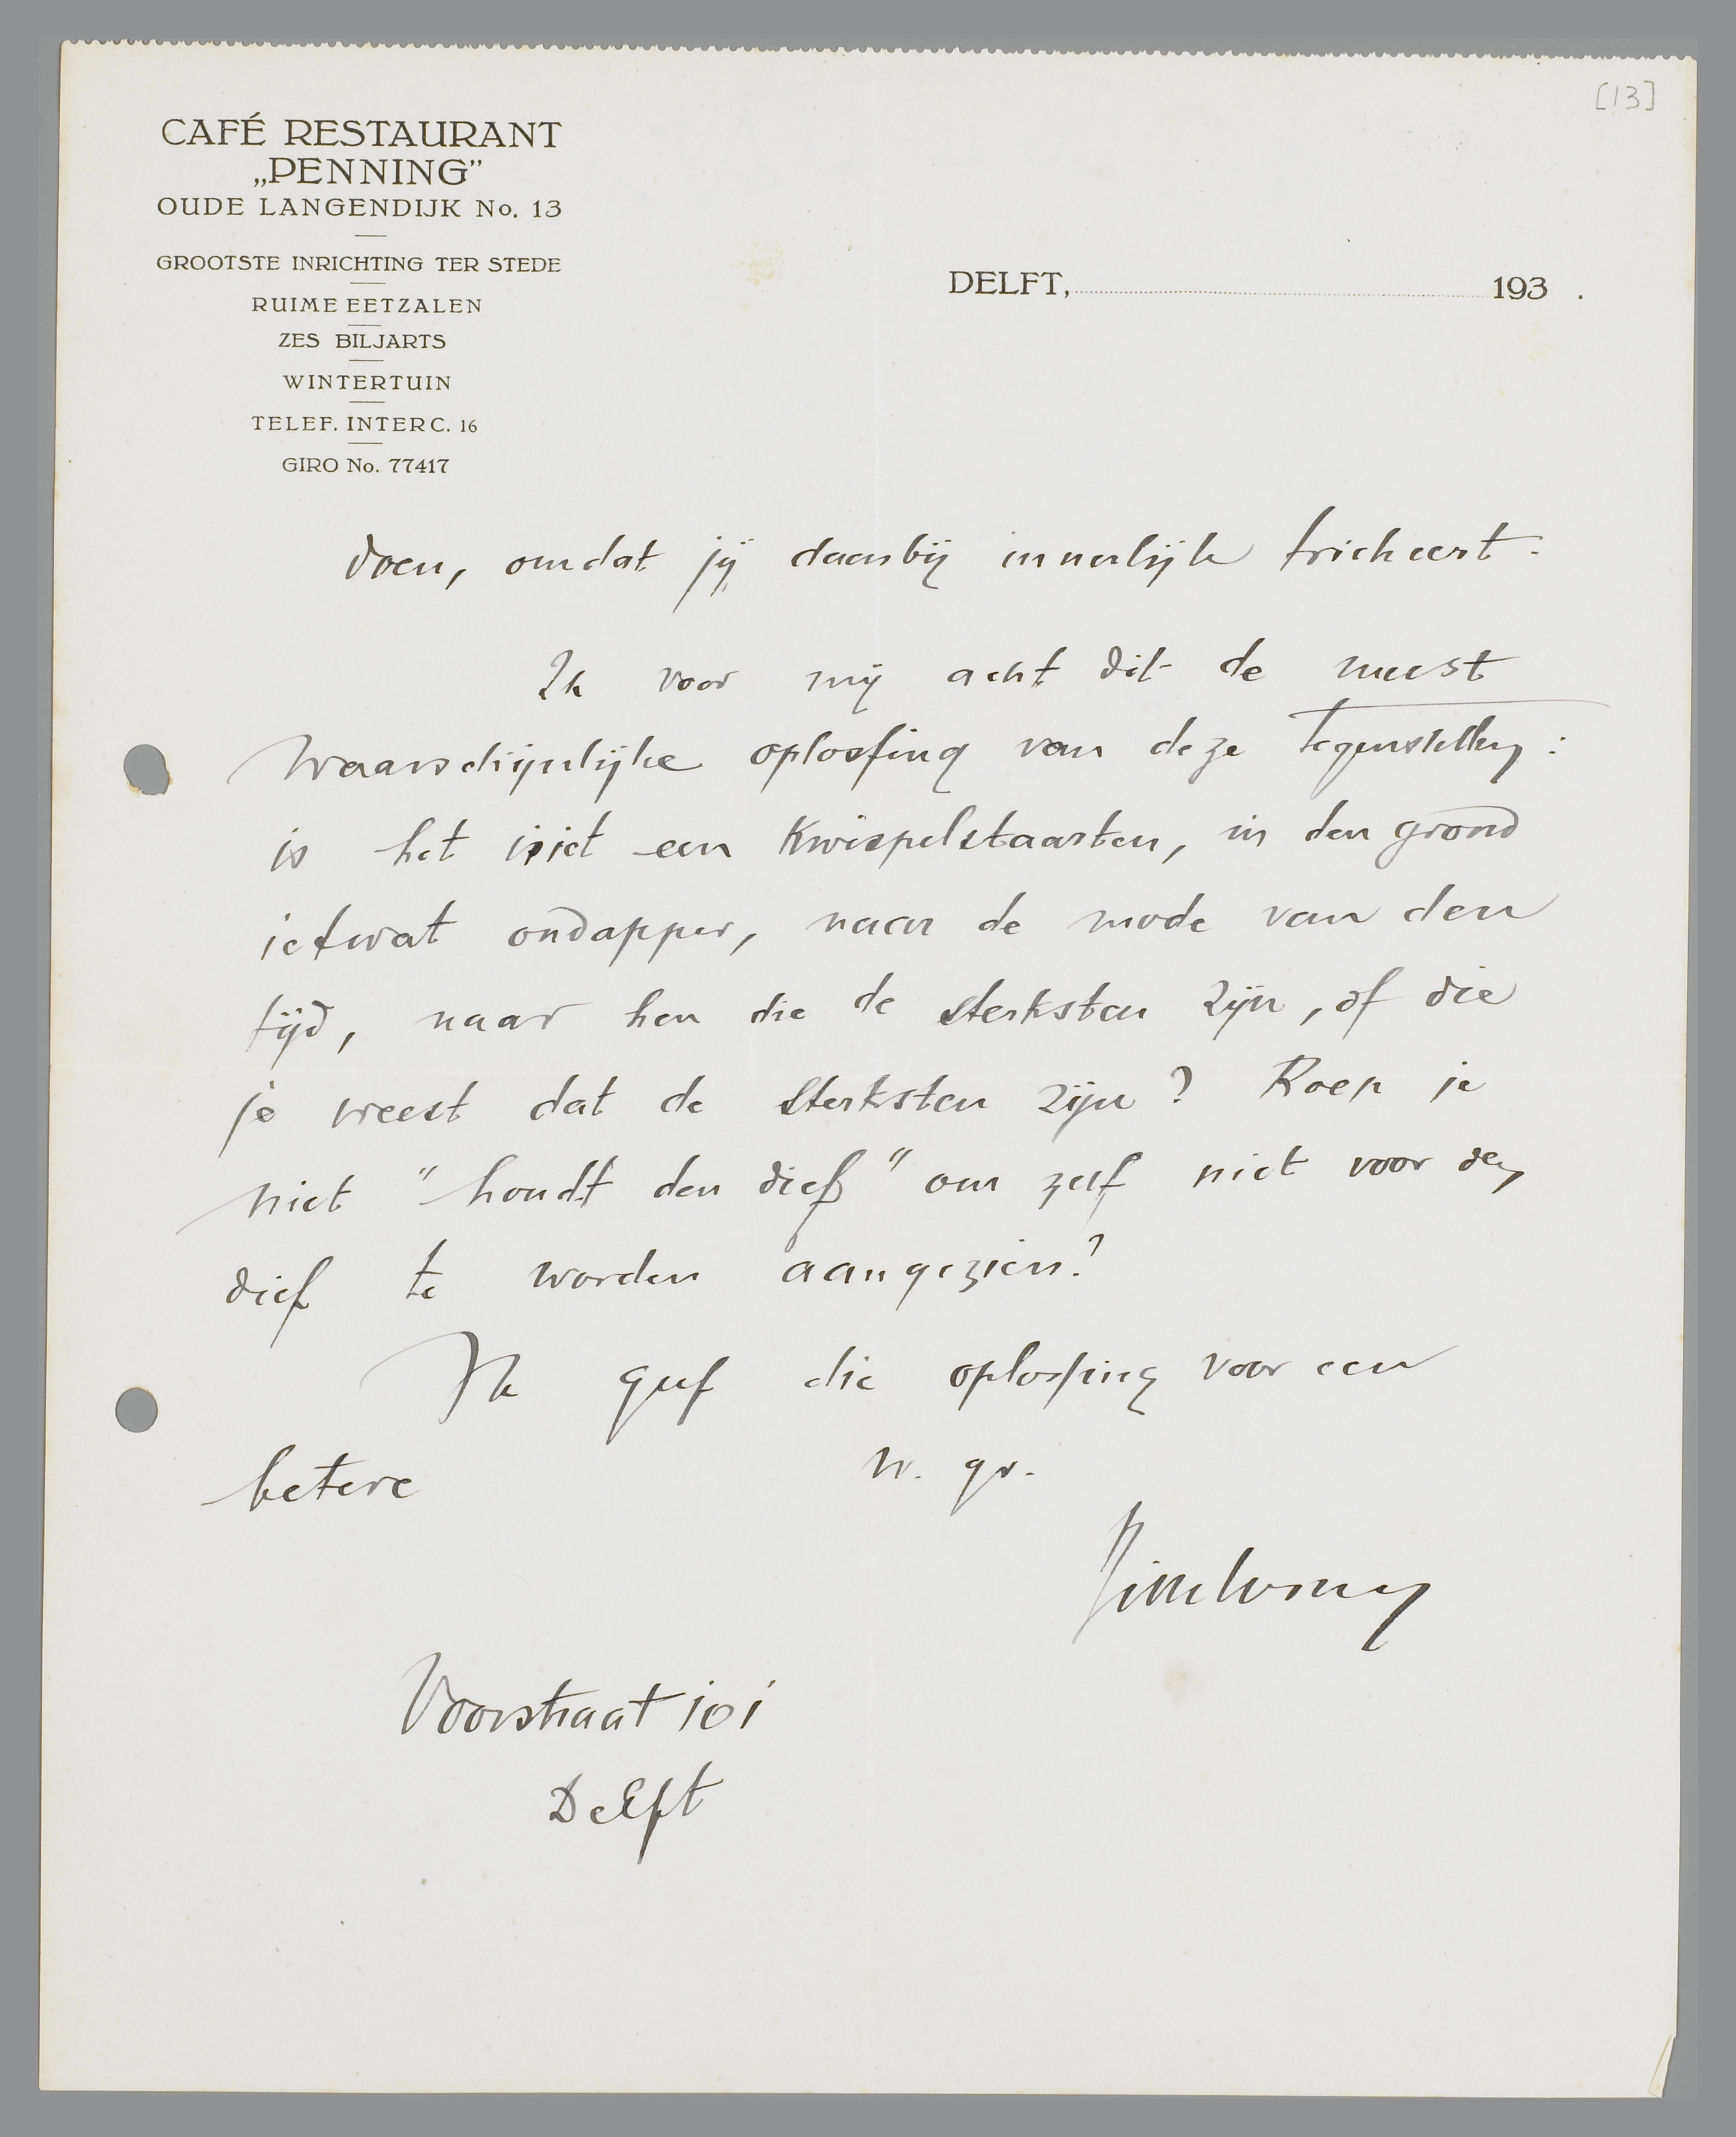 [13]
CAFÉ RESTAURANT
„PENNING”
OUDE LANGENDIJK No. 13
GROOTSTE INRICHTING TER STEDE
RUIME EETZALEN
ZES BILJARTS
WINTERTUIN
TELEF. INTERC. 16
GIRO No. 77417
DELFT, 193 .
doen, omdat jij daarbij innerlijk tricheert.
Ik voor mij acht dit de meest
waarschijnlijke oplossing van deze tegenstelling:
is het niet een kwispelstaarten, in den grond
ietwat ondapper, naar de mode van den
tijd, naar hen die de sterksten zijn, of die
je vreest dat de sterksten zijn? Roep je
niet "houdt den dief" om zelf niet voor den
dief te worden aangezien?
Ik geef die oplossing voor een
betere
v. gr.
Voorstraat 101
Delft